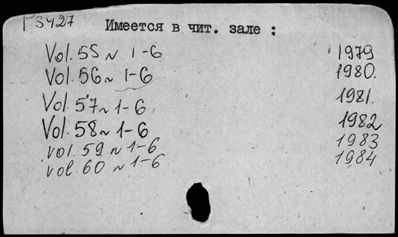 Г3427
Имеется в чит. зале :
Vol. 55 N 1-6 1979
Vol. 56 N 1-6 1980.
Vol. 57 N 1-6 1981.
Vol. 58 N 1-6 1982
vol. 59 N 1-6 1983
vol. 60 N 1-6 1984